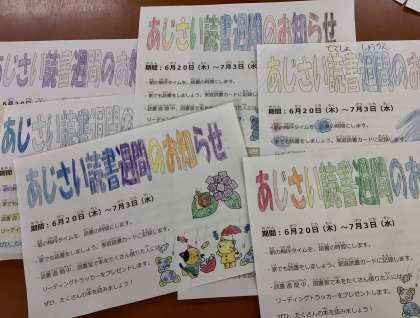 あじさい読書週間のお知らせ
期間:6月20日(木)～7月3日(水)
タイムを、読書の時間にします。
・家でも読書をしましょう。家庭読書カードに記
・読書週間中、図書室で本をたくさん借りた人には
あじさい読書週間のお
期間:6月20日(木)
どくしょ しゅうかん
あじさい読書週間のお
期間:6月20日(木)～7月3日(水)
タイムを、読書の時間にします。
あじさい読書週間の
あじさい読書週間のお知らせ
期間:6月20日(木)～7月3日(水)
タイムを、読書の時間にします。
・家でも読書をしましょう。家庭読書カードに記録します。
・読書週間中、図書室で本をたくさん借りた人には、
リーディングトラッカーをプレゼントします。
ぜひ、たくさんの本を読みましょう！
あじさい読書週間のお
期間:6月20日(木)～7月3日(水)
タイムを、読書の時間にします。
・家でも読書をしましょう。家庭読書カードに記
・読書週間中、図書室で本をたくさん借りた人に
リーディングトラッカーをプレゼントします。
ぜひ、たくさんの本を読みましょう！